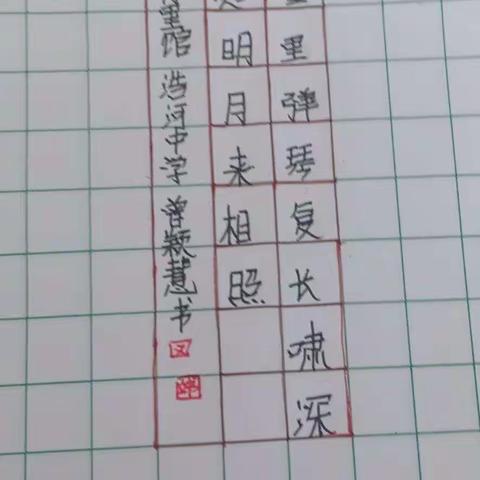 里弹琴复长啸深
明月来相照
里馆 浩河中学 曾颖慧书